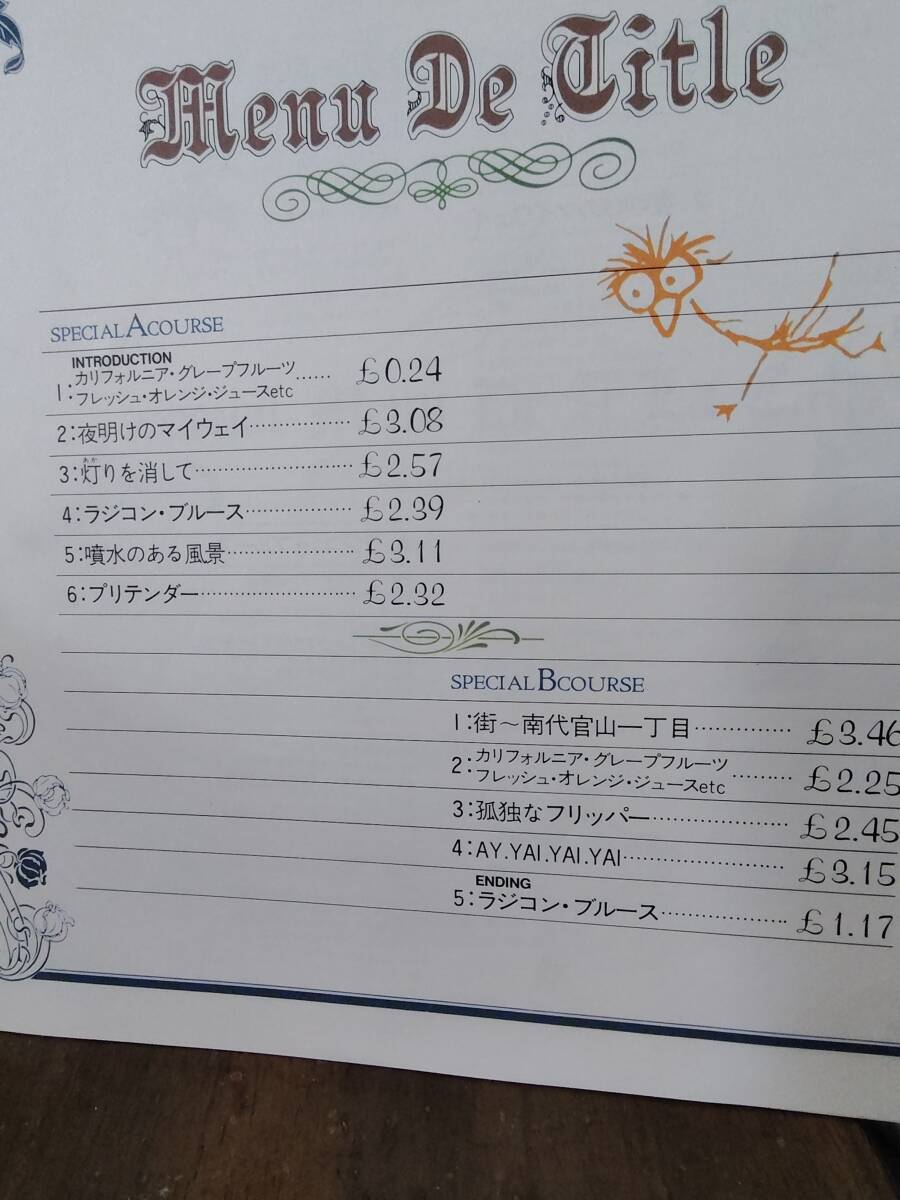 Menu De Title
SPECIAL A COURSE
INTRODUCTION
1:カリフォルニア・グレープフルーツ
フレッシュ・オレンジ・ジュースetc……£0.24
2:夜明けのマイウェイ………………£3.08
3:灯りを消して………………………£2.57
あか
4:ラジコン・ブルース………………£2.39
5:噴水のある風景……………………£3.11
6:プリテンダー………………………£2.32
SPECIAL B COURSE
1:街〜南代官山一丁目……………£3.46
2:カリフォルニア・グレープフルーツ
フレッシュ・オレンジ・ジュースetc………£2.25
3:孤独なフリッパー…………………£2.45
4:AY.YAI.YAI.YAI………………………£3.15
ENDING
5:ラジコン・ブルース…………………£1.17